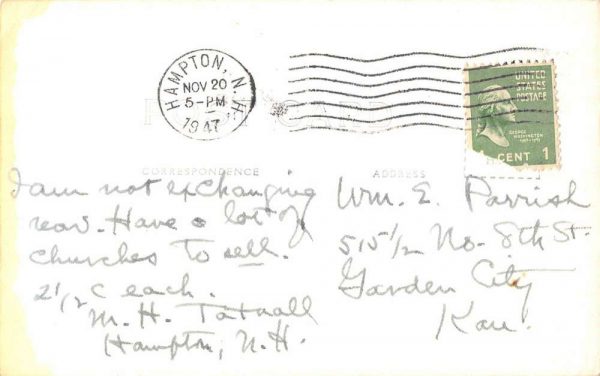 HAMPTON, N.H.
NOV 20
5-PM
1947
UNITED
STATES
POSTAGE
GEORGE
WASHINGTON
CENT 1
POST CARD
CORRESPONDENCE
ADDRESS
I am not exchanging
now. Have a lot of
churches to sell.
2 1/2 c each.
M. H. Tatnall
Hampton, N.H.
Wm. E. Parrish
515 1/2 No. 8th St.
Garden City
Kan.